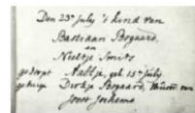 Den 23ste July 't kind van
Bastiaan Bogaard,
en
Neeltje Smits
gedoopt Nellje, geb 15de July.
getuige Dirkje Bogaard, Huisvr van
Joost